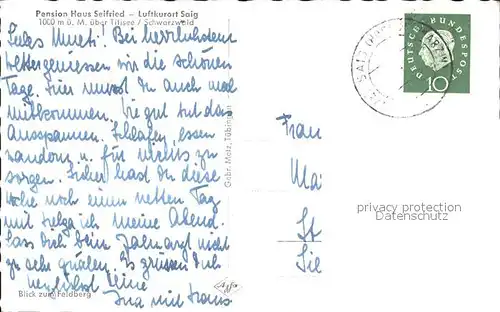 Pension Haus Seifried – Luftkurort Saig
1000 m ü. M. über Titisee / Schwarzwald
Liebes Mutti! Bei herrlichstem
Wetter geniessen wir die schönen
Tage. Hier musst du auch mal
mitkommen. Wie gut tut das
Ausspannen. Schlafen, essen
wandern u. für nichts zu
sorgen. Sicher hast du diese
Woche noch einen netten Tag
mit Helga
Lass Dich beim Zahnarzt nicht
zu sehr quälen. Es grüssen Dich
herzlichst Deine
mit Hans
Blick zum Feldberg
Gebr. Metz, Tübingen
Agfa
SAIG
DEUTSCHE BUNDESPOST
10
Frau
Ma
St
privacy protection
Datenschutz